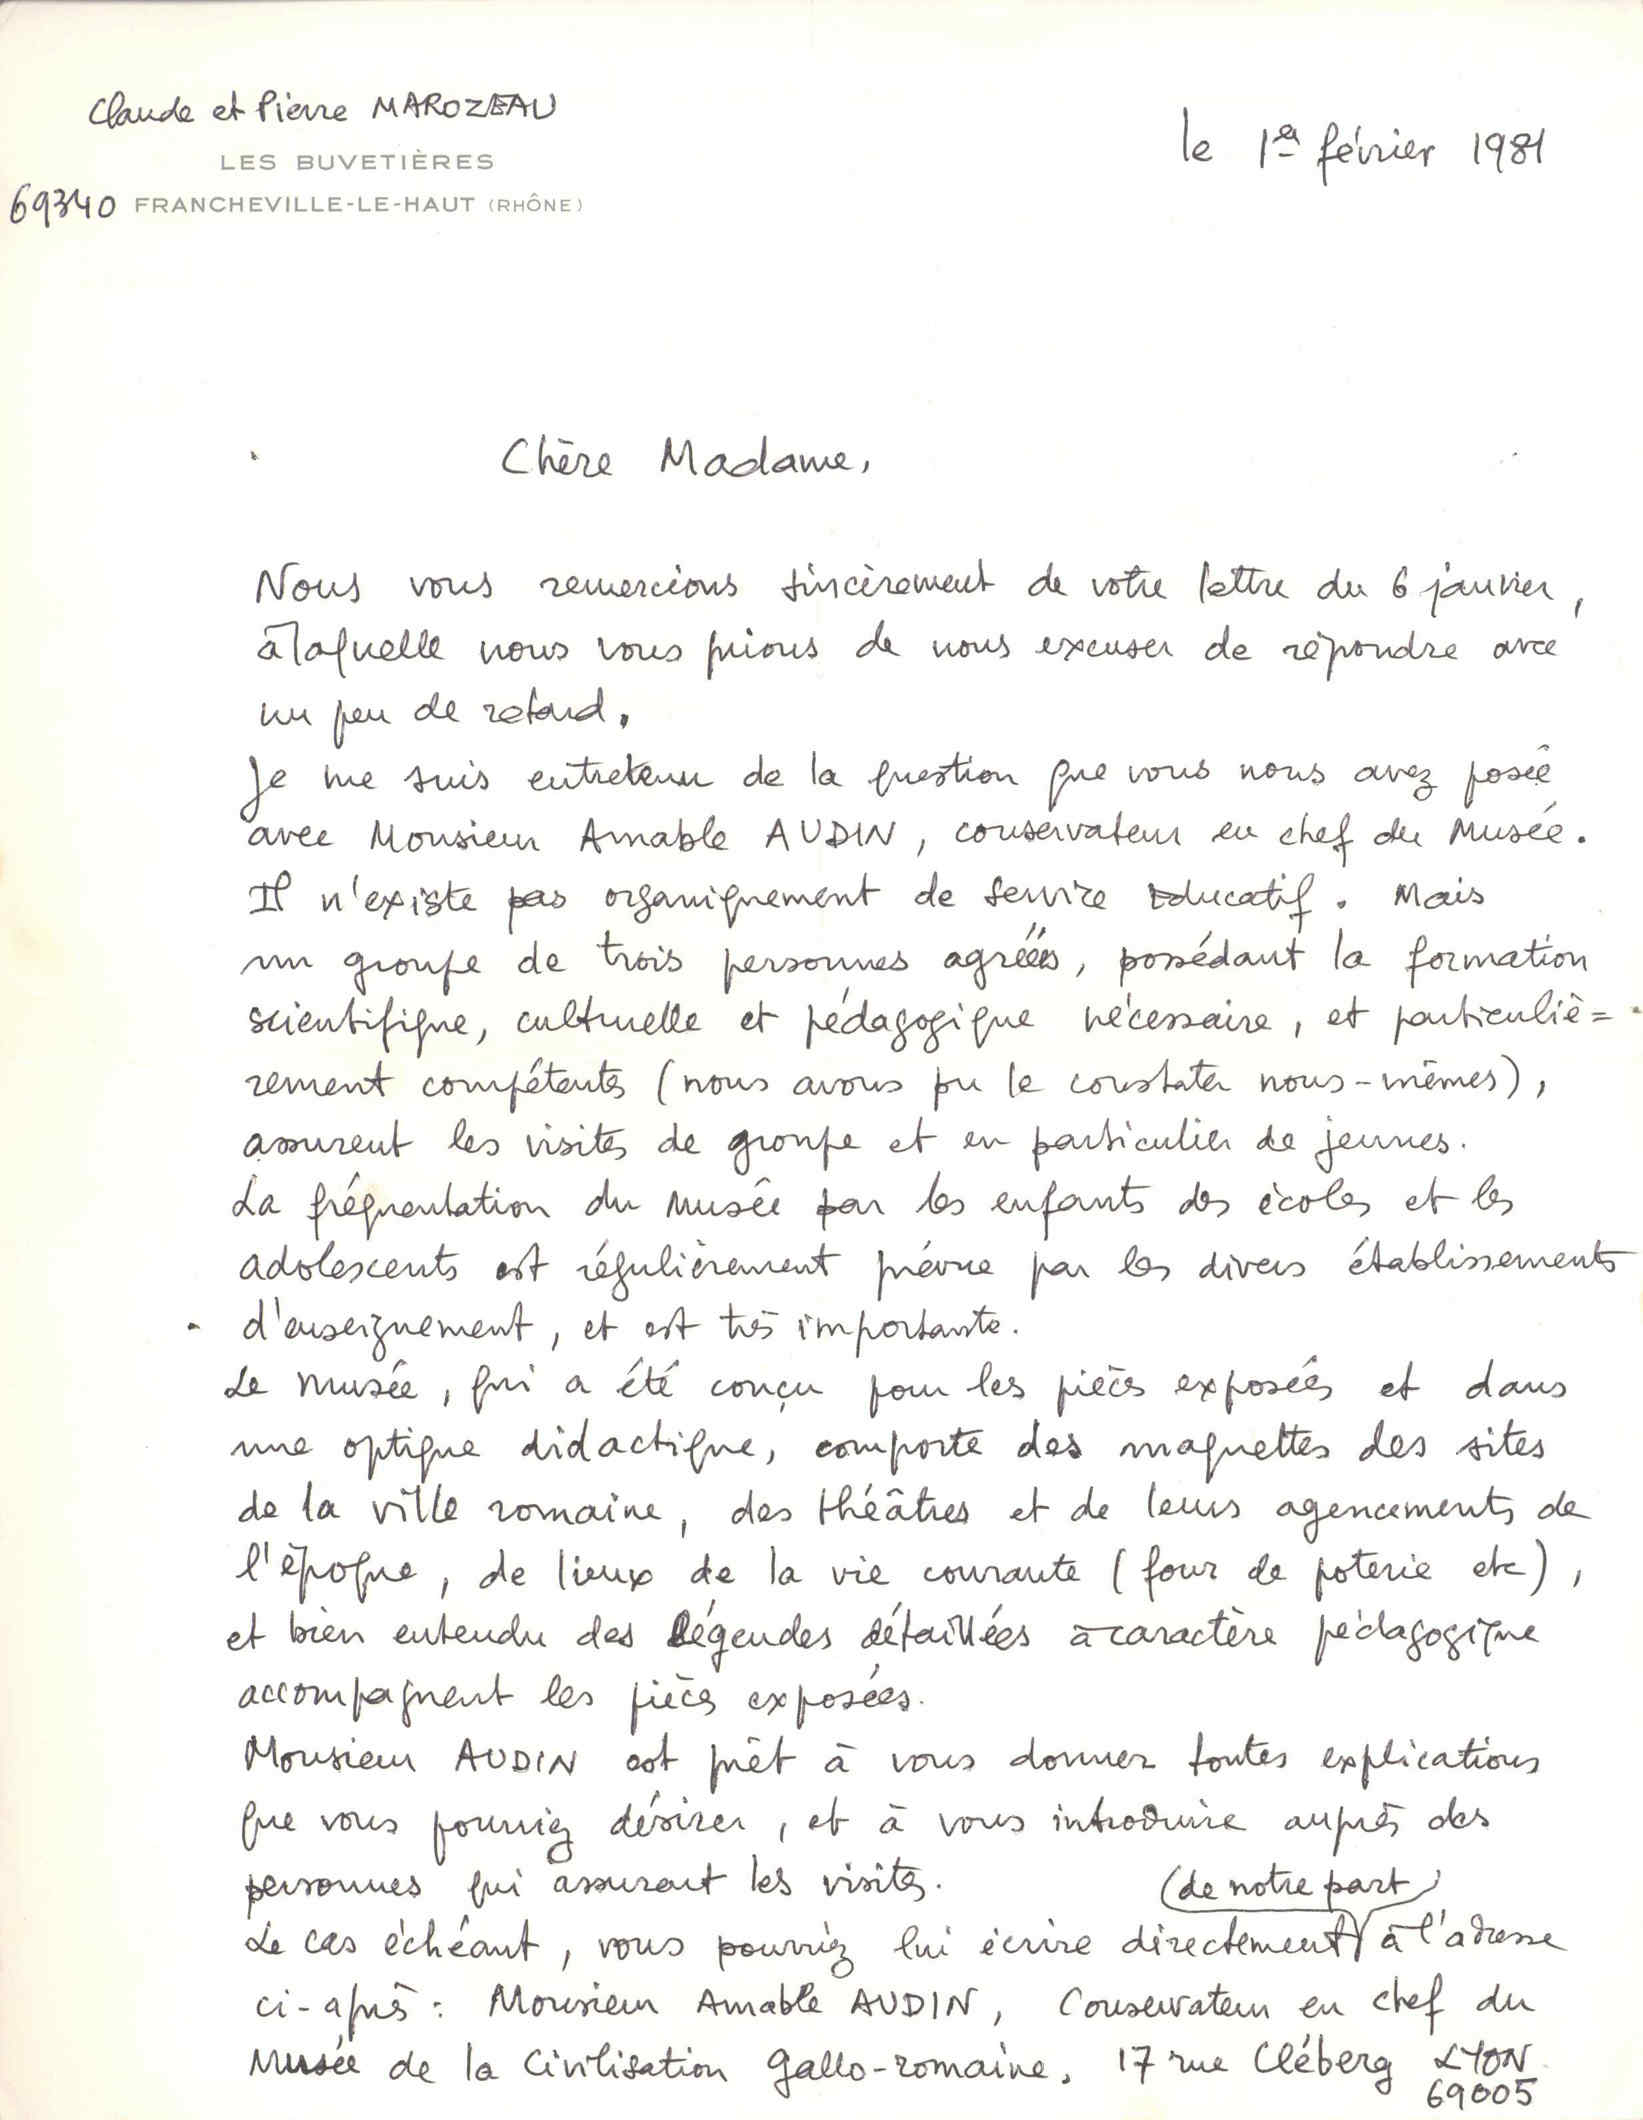 Claude et Pierre MAROZEAU
LES BUVETIÈRES
69340 FRANCHEVILLE-LE-HAUT (RHÔNE)
le 1er février 1981
Chère Madame,
Nous vous remercions sincèrement de votre lettre du 6 janvier,
à laquelle nous vous prions de nous excuser de répondre avec
un peu de retard.
Je me suis entretenu de la question que vous nous avez posée
avec Monsieur Amable AUDIN, conservateur en chef du Musée.
Il n'existe pas organiquement de service éducatif. Mais
un groupe de trois personnes agréées, possédant la formation
scientifique, culturelle et pédagogique nécessaire, et particuliè=
rement compétentes (nous avons pu le constater nous-mêmes),
assurent les visites de groupe et en particulier de jeunes.
La fréquentation du Musée par les enfants des écoles et les
adolescents est régulièrement prévue par les divers établissements
d'enseignement, et est très importante.
Le musée, qui a été conçu pour les pièces exposées et dans
une optique didactique, comporte des maquettes des sites
de la ville romaine, des théâtres et de leurs agencements de
l'époque, de lieux de la vie courante (four de poterie etc),
et bien entendu des légendes détaillées à caractère pédagogique
accompagnent les pièces exposées.
Monsieur AUDIN est prêt à vous donner toutes explications
que vous pourriez désirer, et à vous introduire auprès des
personnes qui assurent les visites.
(de notre part)
Le cas échéant, vous pourriez lui écrire directement à l'adresse
ci-après : Monsieur Amable AUDIN, Conservateur en chef du
Musée de la Civilisation Gallo-romaine. 17 rue Cléberg LYON
69005